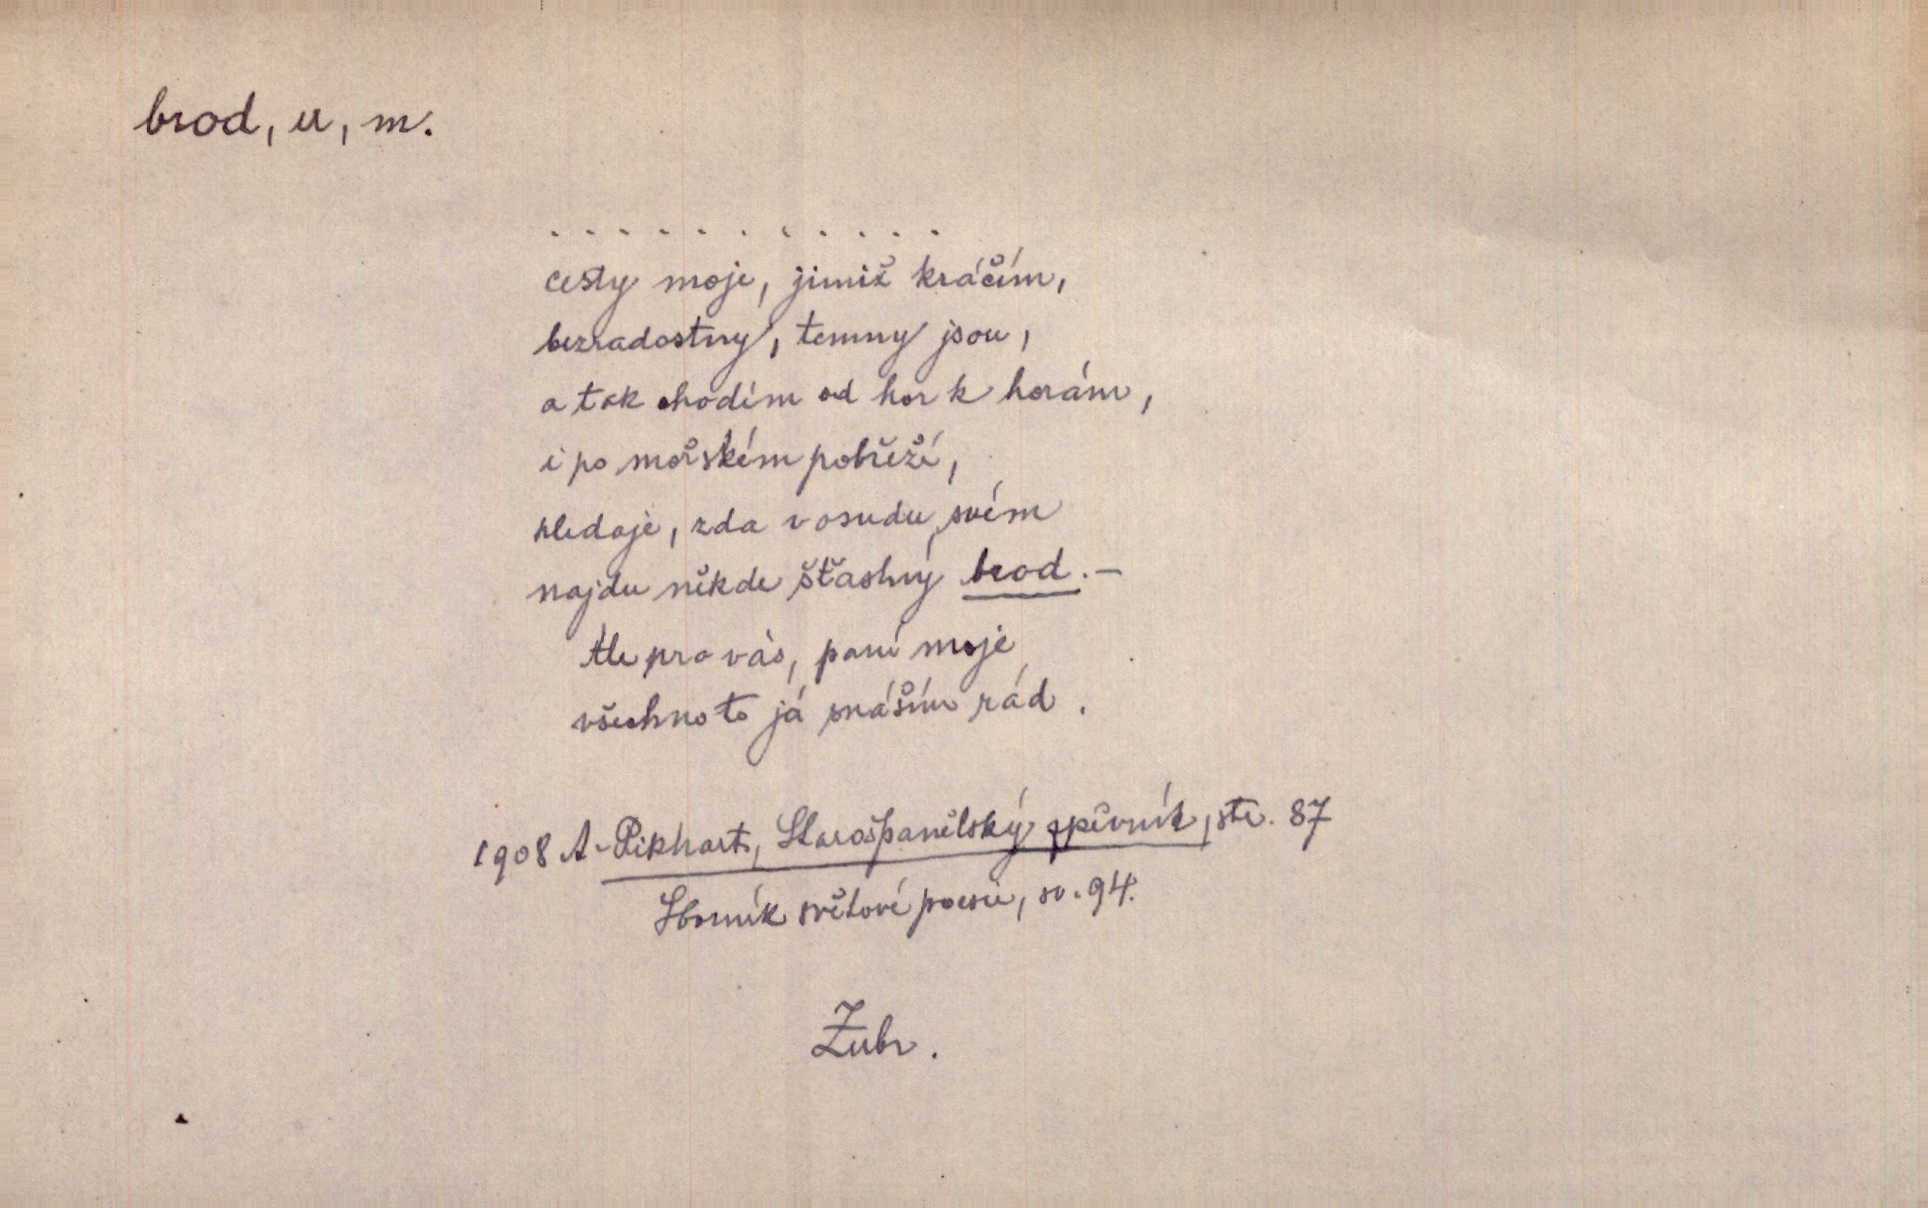 brod, u, m.
. . . . . . . . . . .
cesty moje, jimiž kráčím,
bezradostny, temny jsou,
a tak chodím od hor k horám,
i po mořském pobřeží,
hledaje, zda v osudu svém
najdu někde šťastný brod. –
Ale pro vás, paní moje
všechno to já snáším rád.
1908 A. Pikhart, Starošpanělský zpěvník, str. 87
Sborník světové poesie, sv. 94.
Zubr.